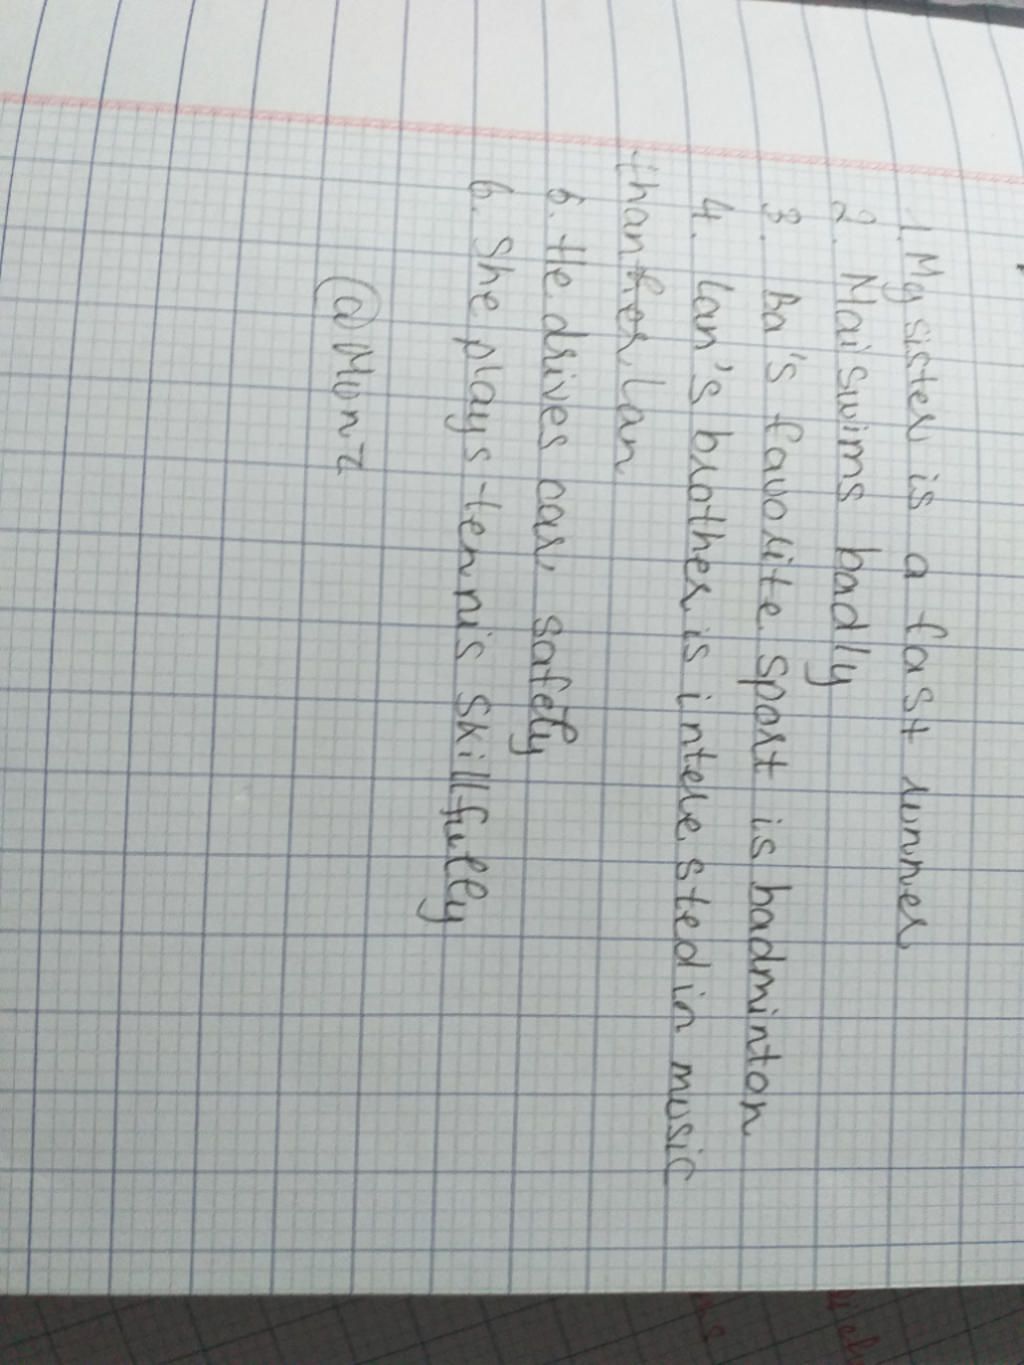 1. My sister is a fast runner
2. Mai swims badly
3. Ba's favorite sport is badminton
4. Lan's brother is interested in music
than her, Lan
5. He drives car safely
6. She plays tennis skillfully
@Monz